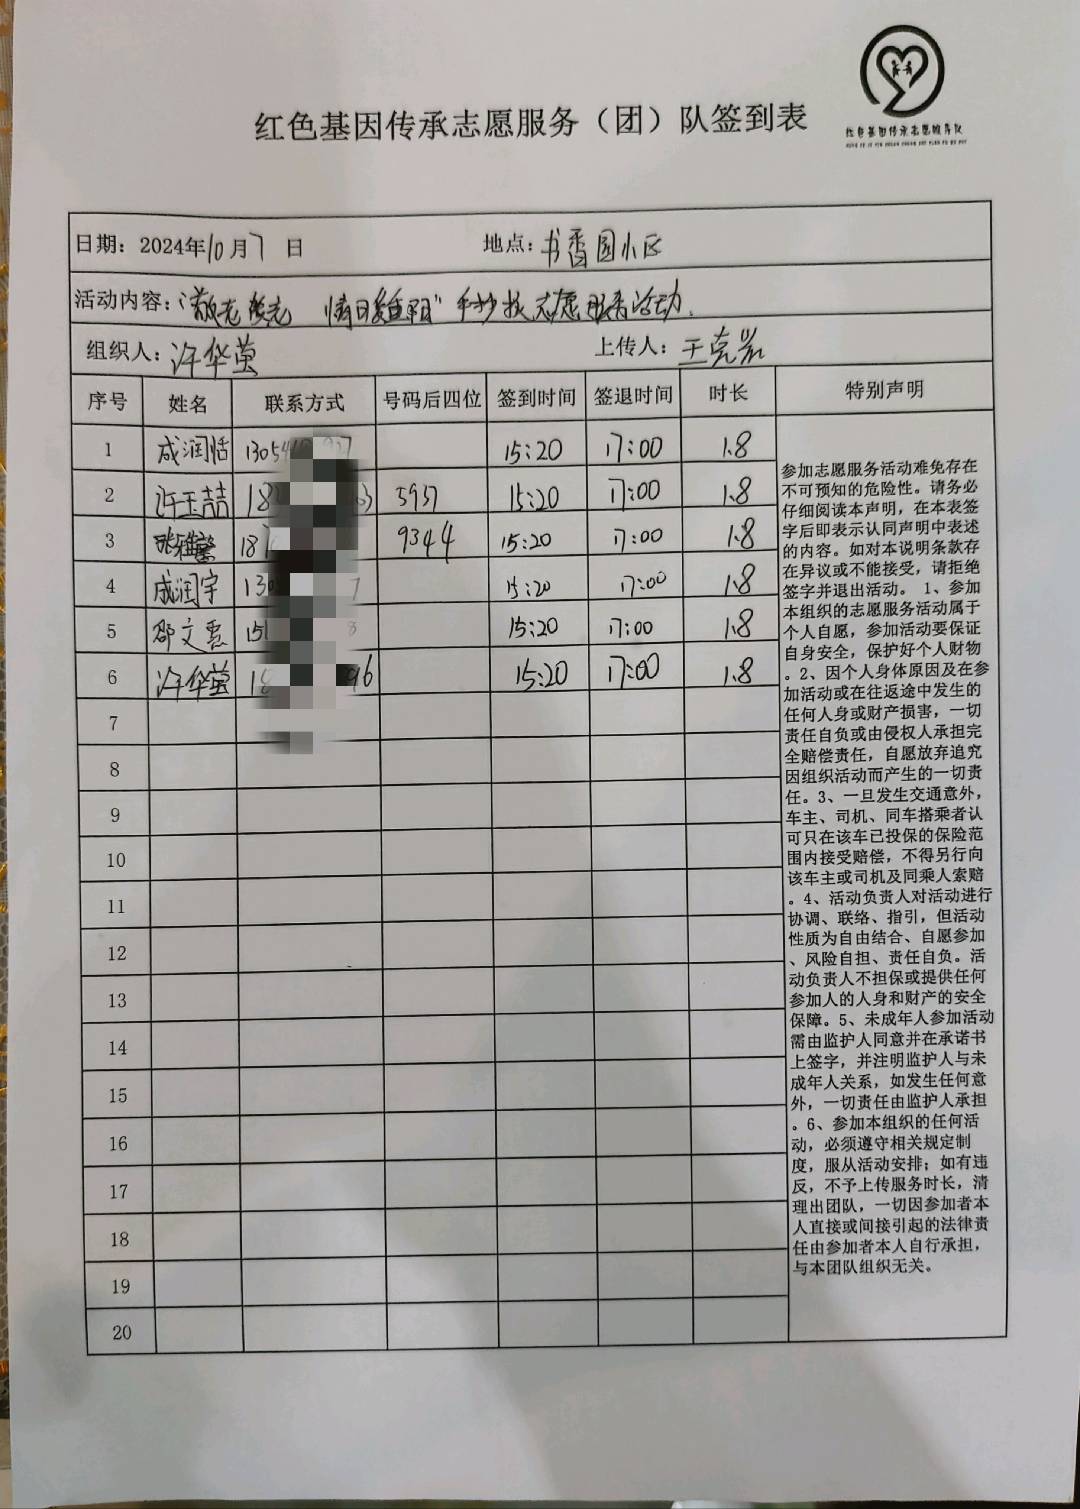 红色基因传承志愿服务（团）队签到表
红色基因传承志愿服务队
日期：2024年10月7日 地点：书香园小区
活动内容："敬老爱老 情日系重阳"手抄报志愿服务活动.
组织人：许华萤 上传人：王克岩
序号 姓名 联系方式 号码后四位 签到时间 签退时间 时长 特别声明
1 成润恬 15:20 17:00 1.8
2 许玉喆 5937 15:20 17:00 1.8
3 张雅馨 9344 15:20 17:00 1.8
4 成润宇 15:20 17:00 1.8
5 邵文惠 15:20 17:00 1.8
6 许华萤 15:20 17:00 1.8
7
8
9
10
11
12
13
14
15
16
17
18
19
20
参加志愿服务活动难免存在
不可预知的危险性。请务必
仔细阅读本声明，在本表签
字后即表示认同声明中表述
的内容。如对本说明条款存
在异议或不能接受，请拒绝
签字并退出活动。 1、参加
本组织的志愿服务活动属于
个人自愿，参加活动要保证
自身安全，保护好个人财物
。2、因个人身体原因及在参
加活动或在往返途中发生的
任何人身或财产损害，一切
责任自负或由侵权人承担完
全赔偿责任，自愿放弃追究
因组织活动而产生的一切责
任。3、一旦发生交通意外，
车主、司机、同车搭乘者认
可只在该车已投保的保险范
围内接受赔偿，不得另行向
该车主或司机及同乘人索赔
。4、活动负责人对活动进行
协调、联络、指引，但活动
性质为自由结合、自愿参加
、风险自担、责任自负。活
动负责人不担保或提供任何
参加人的人身和财产的安全
保障。5、未成年人参加活动
需由监护人同意并在承诺书
上签字，并注明监护人与未
成年人关系，如发生任何意
外，一切责任由监护人承担
。6、参加本组织的任何活
动，必须遵守相关规定制
度，服从活动安排；如有违
反，不予上传服务时长，清
理出团队，一切因参加者本
人直接或间接引起的法律责
任由参加者本人自行承担，
与本团队组织无关。